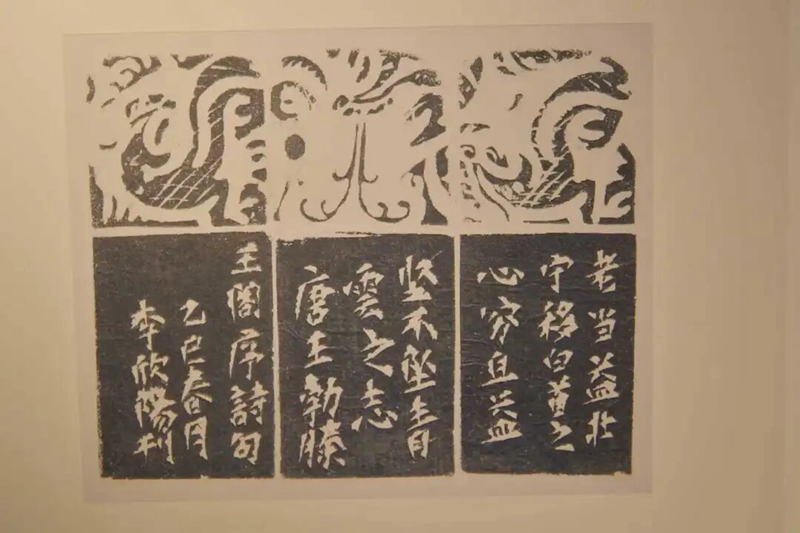 老当益壮
宁移白首之
心穷且益
坚不坠青
雲之志
唐王勃滕
王閣序詩句
乙巳春月
李欣陽刊